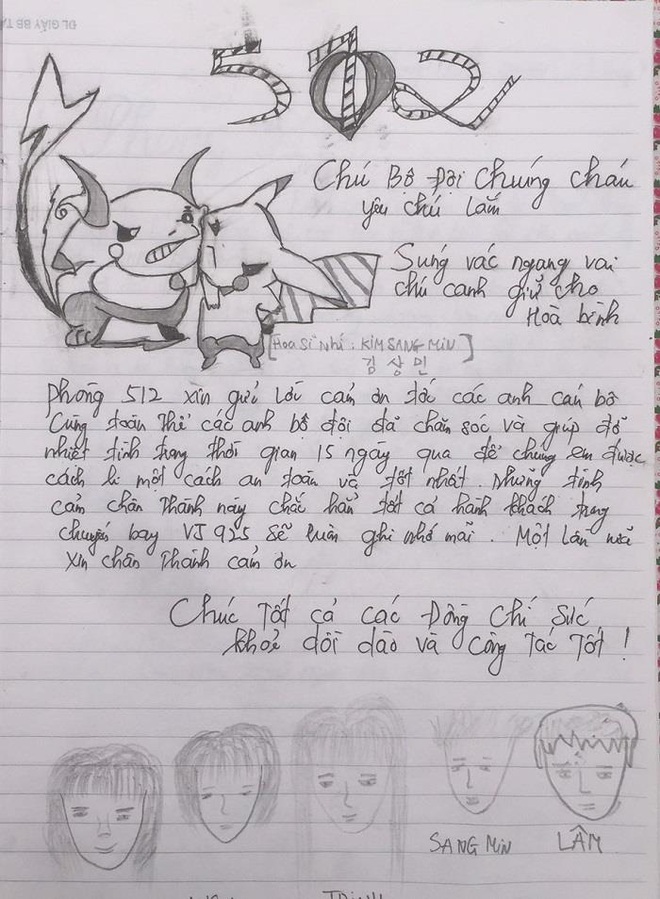 512
Chú Bộ Đội chúng cháu
yêu chú lắm
Súng vác ngang vai
chú canh giữ cho
Hoà bình
[Hoạ Sĩ Nhí: KIM SANG MIN]
김상민
Phòng 512 xin gửi lời cảm ơn tới các anh cán bộ
Cùng toàn thể các anh bộ đội đã chăm sóc và giúp đỡ
nhiệt tình trong thời gian 15 ngày qua để chúng em được
cách li một cách an toàn và tốt nhất. Những tình
cảm chân thành này chắc hẳn tất cả hành khách trong
chuyến bay VJ 925 sẽ luôn ghi nhớ mãi. Một lần nữa
xin chân thành cảm ơn
Chúc Tất cả các Đồng Chí Sức
khoẻ dồi dào và Công Tác Tốt!
SANG MIN LÂM